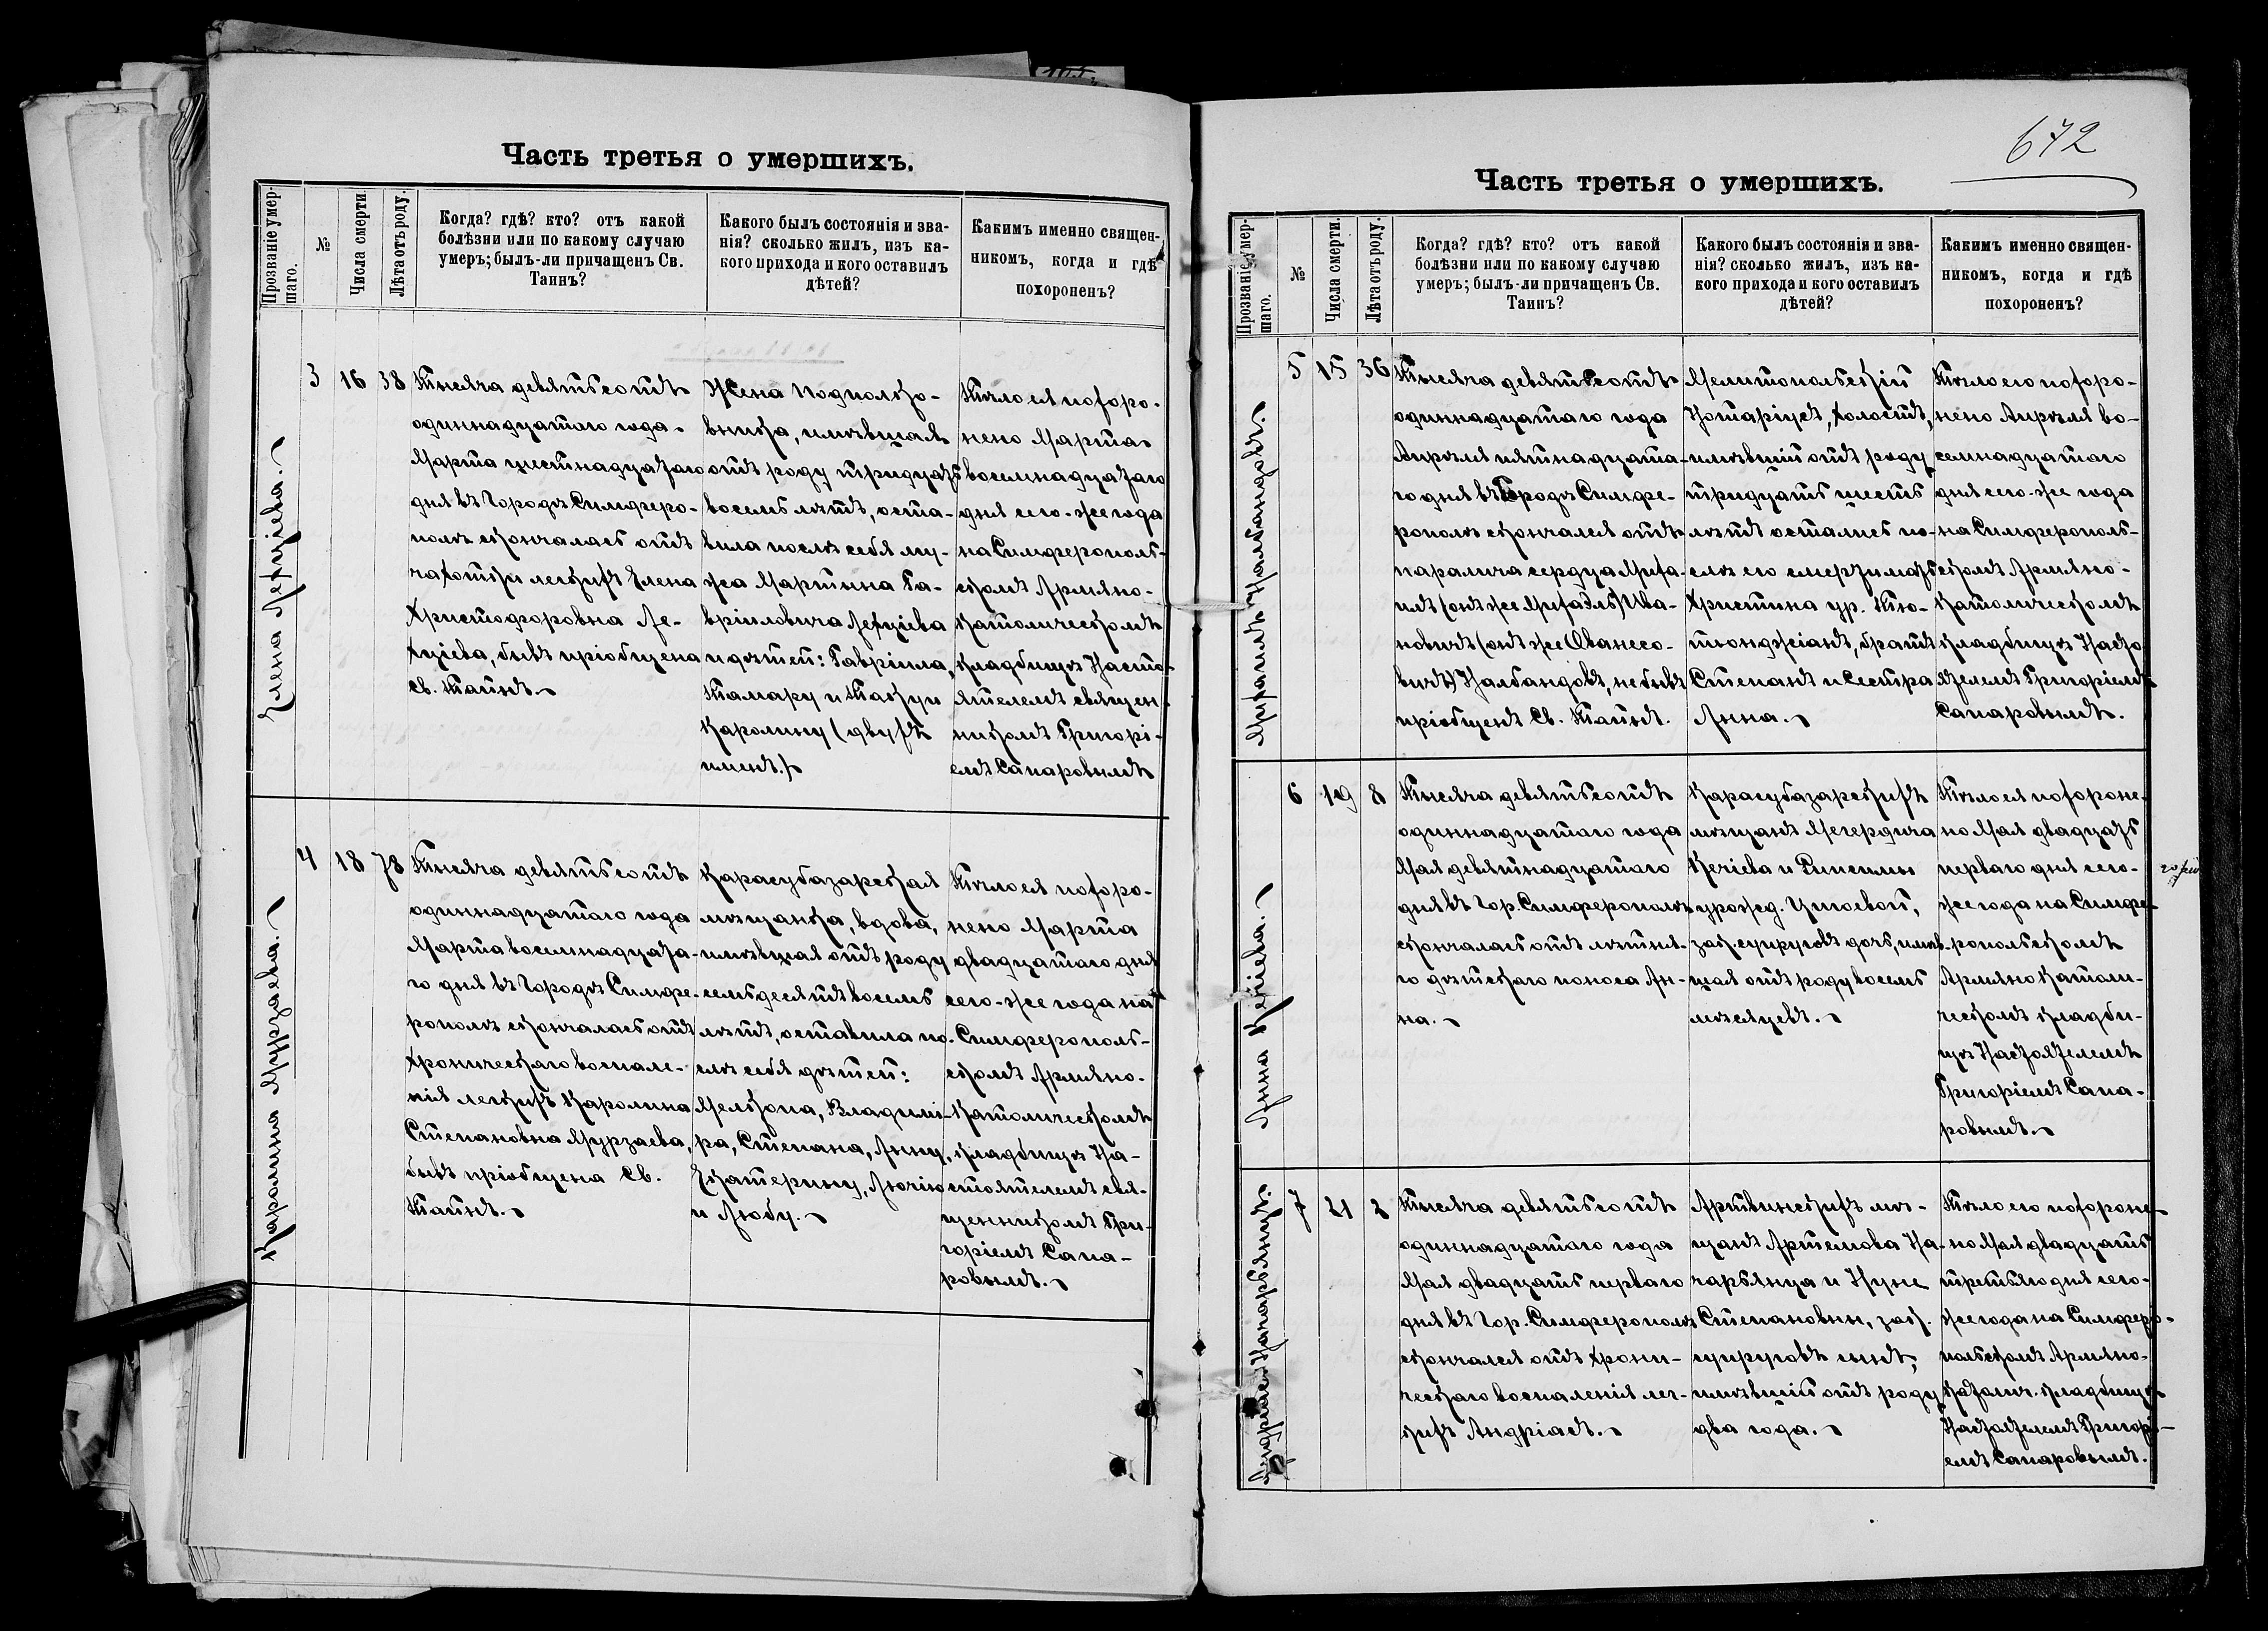 Часть третья о умершихъ.
Прозваніе умер-
шаго.
№
Числа смерти.
Лѣта отъ роду.
Когда? гдѣ? кто? отъ какой
болѣзни или по какому случаю
умеръ; былъ-ли причащенъ Св.
Таинъ?
Какого былъ состоянія и зва-
нія? сколько жилъ, изъ ка-
кого прихода и кого оставилъ
дѣтей?
Какимъ именно священ-
никомъ, когда и гдѣ
похороненъ?
Елена Лехціева.
3
16
38
Тысяча девятьсотъ
одиннадцатаго года
Марта шестнадцатаго
дня въ Городѣ Симферо-
полѣ скончалась отъ
чахотки легкихъ Елена
Христофоровна Ле-
хціева, бывъ пріобщена
Св. Таинъ.
Жена Подполко-
вника, имѣвшая
отъ роду тридцать
восемь лѣтъ, оста-
вила послѣ себя му-
жа Мартына Га-
вріиловича Лехціева
и дѣтей: Гавріила,
Тамару и
Каролину (двухъ
именъ.)
Тѣло ея похоро-
нено Марта
восемнадцатаго
дня сего-же года
на Симферополь-
скомъ Армяно-
Католическомъ
Кладбищѣ Насто-
ятелемъ священ-
никомъ Григорі-
емъ Сапаровымъ
Каролина Мурзаева.
4
18
78
Тысяча девятьсотъ
одиннадцатаго года
Марта восемнадцата-
го дня въ Городѣ Симфе-
рополѣ скончалась отъ
хроническаго воспале-
нія легкихъ Каролина
Степановна Мурзаева,
бывъ пріобщена Св.
Таинъ.
Карасубазарская
мѣщанка, вдова,
имѣвшая отъ роду
семьдесятъ восемь
лѣтъ, оставила по-
слѣ себя дѣтей:
Мелкона, Владими-
ра, Степана, Анну,
Екатерину, Люцію
и Любу.
Тѣло ея похоро-
нено Марта
двадцатаго дня
сего-же года на
Симферополь-
скомъ Армяно-
Католическомъ
кладбищѣ На-
стоятелемъ свя-
щенникомъ Гри-
горіемъ Сапа-
ровымъ.
672
Часть третья о умершихъ.
Прозваніе умер-
шаго.
№
Числа смерти.
Лѣта отъ роду.
Когда? гдѣ? кто? отъ какой
болѣзни или по какому случаю
умеръ; былъ-ли причащенъ Св.
Таинъ?
Какого былъ состоянія и зва-
нія? сколько жилъ, изъ ка-
кого прихода и кого оставилъ
дѣтей?
Какимъ именно священ-
никомъ, когда и гдѣ
похороненъ?
Михаилъ Налбандовъ.
5
15
36
Тысяча девятьсотъ
одиннадцатаго года
Апрѣля пятнадцата-
го дня въ Городѣ Симфе-
рополѣ скончался отъ
паралича сердца Миха-
илъ (онъ же Михаэль) Ива-
новичъ (онъ же Ованесо-
вичъ) Налбандовъ, не бывъ
пріобщенъ Св. Таинъ.
Мелитопольскій
Нотаріусъ, холостъ,
имѣвшій отъ роду
тридцать шесть
лѣтъ остались по-
слѣ его смерти мать
Христина ур. Тю-
тюнджіанъ, братъ
Степанъ и Сестра
Анна.
Тѣло его похоро-
нено Апрѣля во-
семнадцатаго
дня сего-же года
на Симферополь-
скомъ Армяно-
Католическомъ
кладбищѣ Насто-
ятелемъ Григоріемъ
Сапаровымъ.
Анна Кечіева.
6
19
8
Тысяча девятьсотъ
одиннадцатаго года
Мая девятнадцатаго
дня въ Гор. Симферополѣ
скончалась отъ лѣтня-
го дѣтскаго поноса Ан-
на.
Карасубазарскихъ
мѣщанъ Мегердича
Кечіева и Рипсимы
урожд. Цтоевой,
зак. супруговъ дочь, имѣв-
шая отъ роду восемь
мѣсяцевъ.
Тѣло ея похороне-
но Мая двадцать
перваго дня сего-
же года на Симфе-
ропольскомъ
Армяно Католи-
ческомъ кладби-
щѣ Настоятелемъ
Григоріемъ Сапа-
ровымъ.
7
21
2
Тысяча девятьсотъ
одиннадцатаго года
Мая двадцать перваго
дня въ Гор. Симферополѣ
скончался отъ хрони-
ческаго воспаленія лег-
кихъ Андріасъ.
Артвинскихъ мѣ-
щанъ Артемова На-
чарьянца и Нуне
Степановны, зак.
супруговъ сынъ,
имѣвшій отъ роду
два года.
Тѣло его похороне-
но Мая двадцать
третьяго дня сего-
же года на Симферо-
польскомъ Армяно-
Католич. кладбищѣ
Настоятелемъ Григорі-
емъ Сапаровымъ.